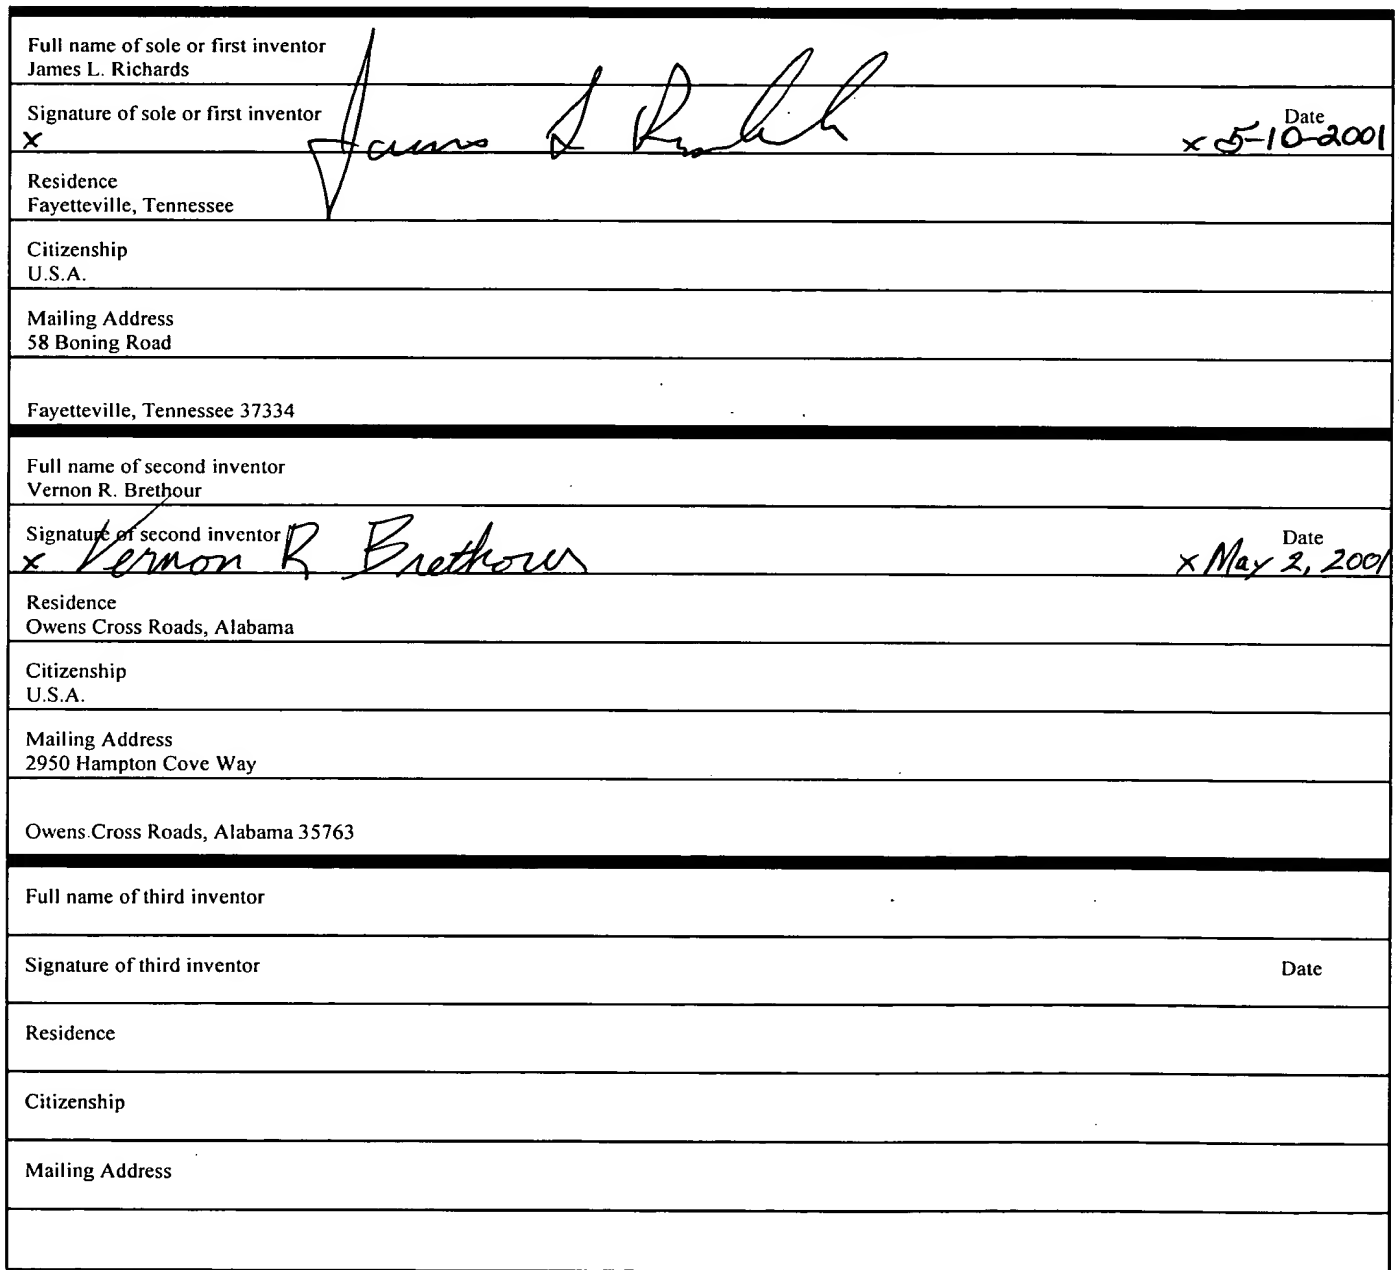 Full name of sole or first inventor
James L. Richards
Signature of sole or first inventor Date
x James L Richards x 5-10-2001
Residence
Fayetteville, Tennessee
Citizenship
U.S.A.
Mailing Address
58 Boning Road
Fayetteville, Tennessee 37334
Full name of second inventor
Vernon R. Brethour
Signature of second inventor Date
x Vernon R Brethour x May 2, 2001
Residence
Owens Cross Roads, Alabama
Citizenship
U.S.A.
Mailing Address
2950 Hampton Cove Way
Owens Cross Roads, Alabama 35763
Full name of third inventor
Signature of third inventor Date
Residence
Citizenship
Mailing Address